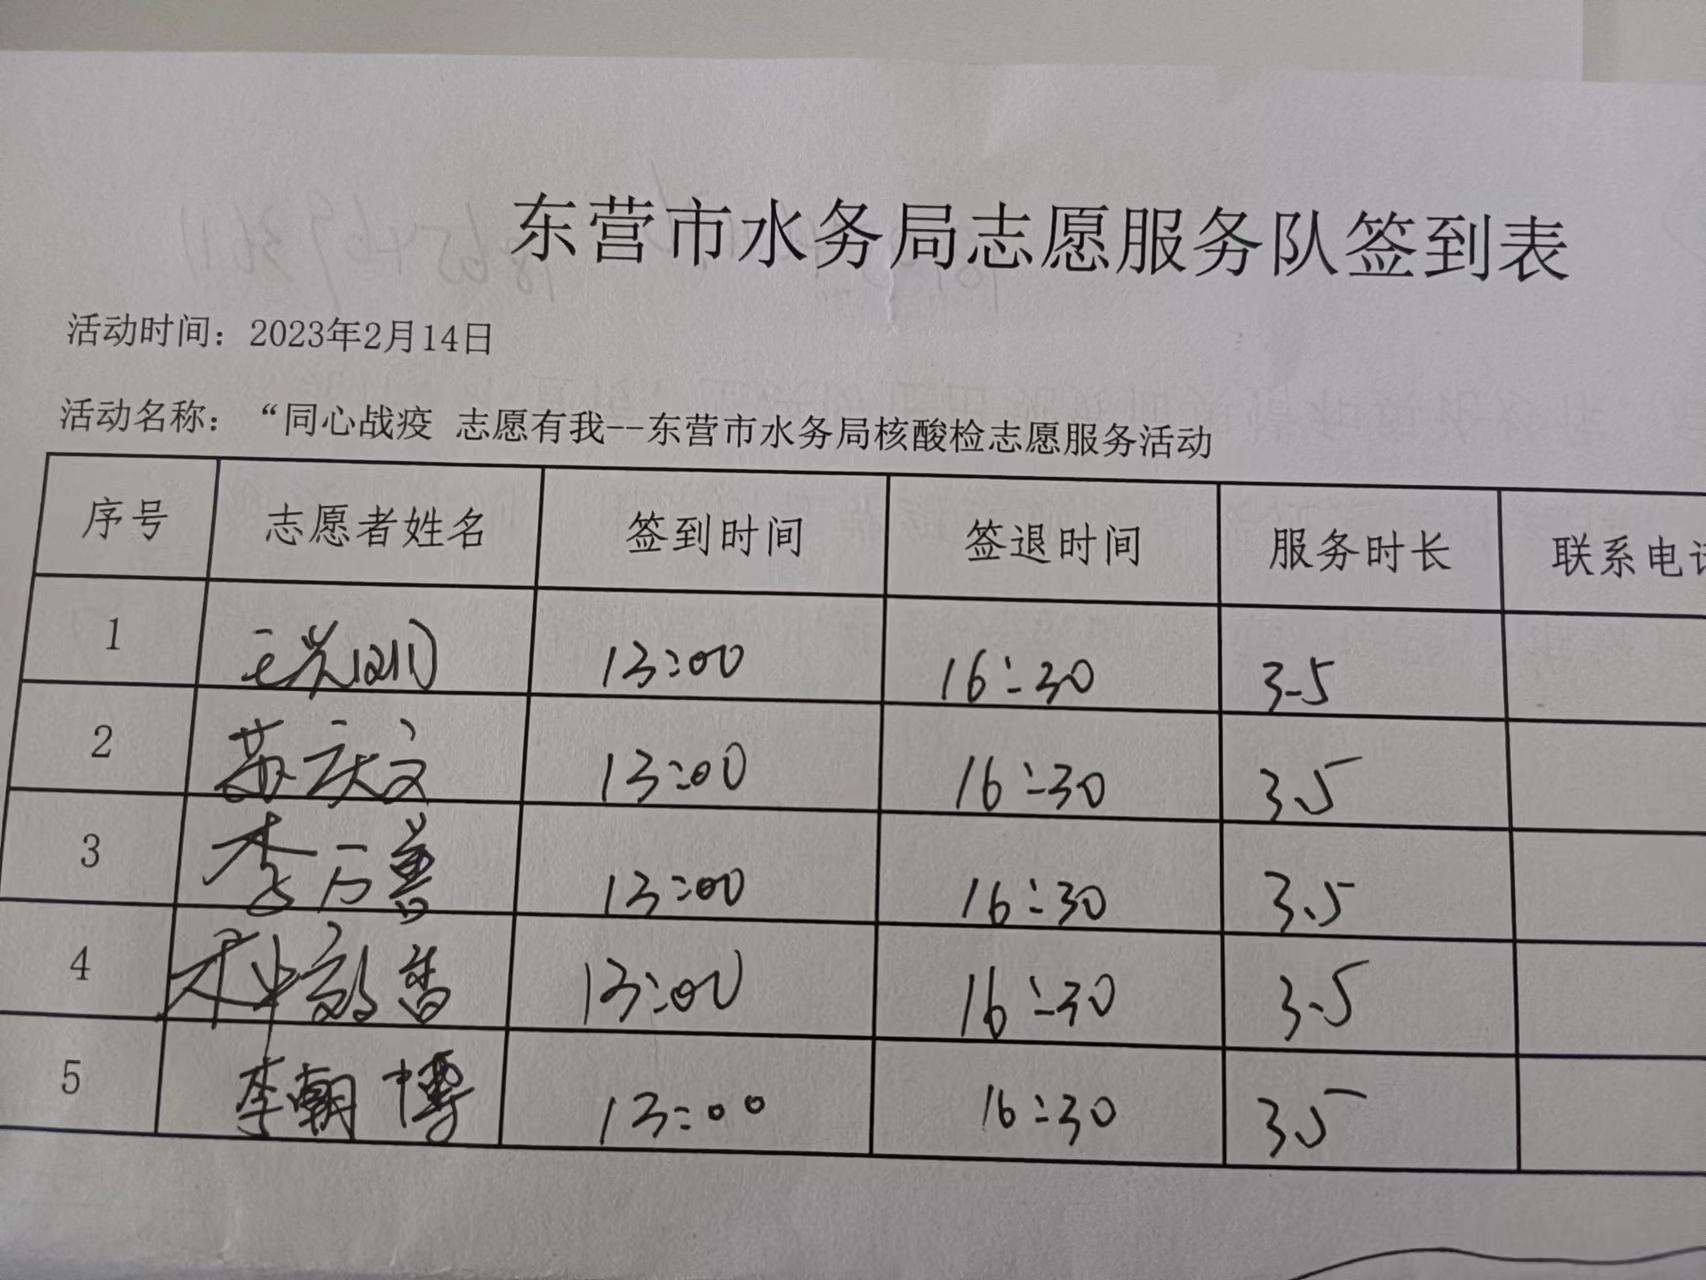 东营市水务局志愿服务队签到表
活动时间：2023年2月14日
活动名称：“同心战疫 志愿有我--东营市水务局核酸检志愿服务活动
序号 志愿者姓名 签到时间 签退时间 服务时长 联系电话
1 13:00 16:30 3.5
2 苏庆文 13:00 16:30 3.5
3 李万善 13:00 16:30 3.5
4 13:00 16:30 3.5
5 李朝博 13:00 16:30 3.5